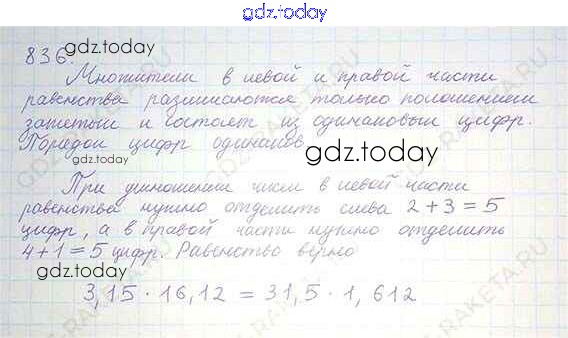 gdz.today
836.
gdz.today
Множители в левой и правой части
равенства различаются только положением
запятых и состоят из одинаковых цифр.
Порядок цифр одинаков.
gdz.today
При умножении чисел в левой части
равенства нужно отделить слева 2+3=5
цифр, а в правой части нужно отделить
4+1=5 цифр. Равенство верно
gdz.today
3,15 · 16,12 = 31,5 · 1,612
gdz.today